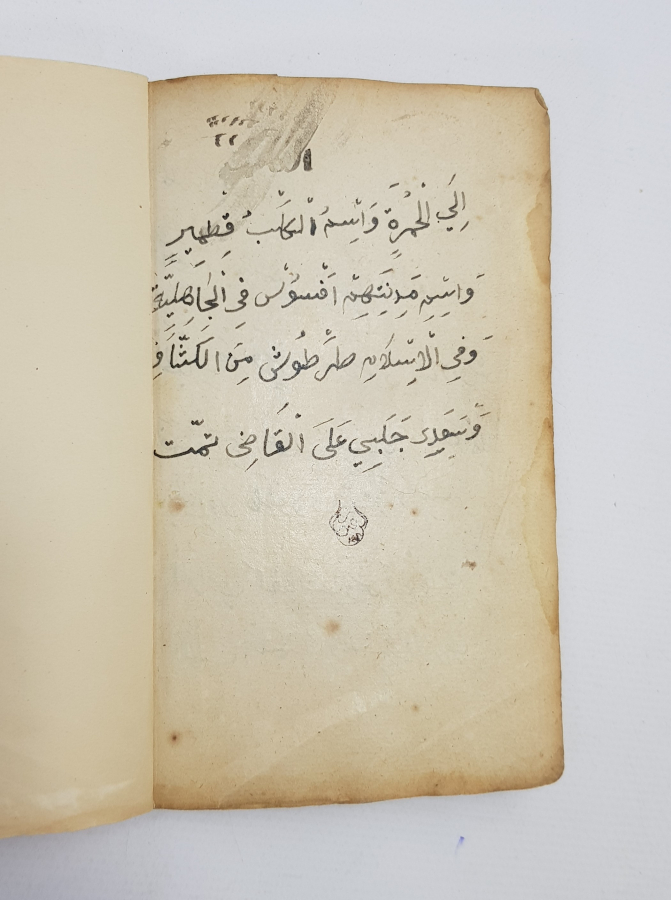 ٢٢
إِلَي الْحُمْرَةِ وَاسْمُ الْكَلْبُ قِطْمِيرٍ
وَاسْمِ مَدِنَتِهِمْ اَفْسُوْس فِي الْجَاهِلِيَّةِ
وَفِي الْاِسْلَامِ طَرْطُوْش مِنَ الْكَشَّافِ
وَسَعْدِى جَلَبِي عَلَىَ الْقَاضِى تمّت